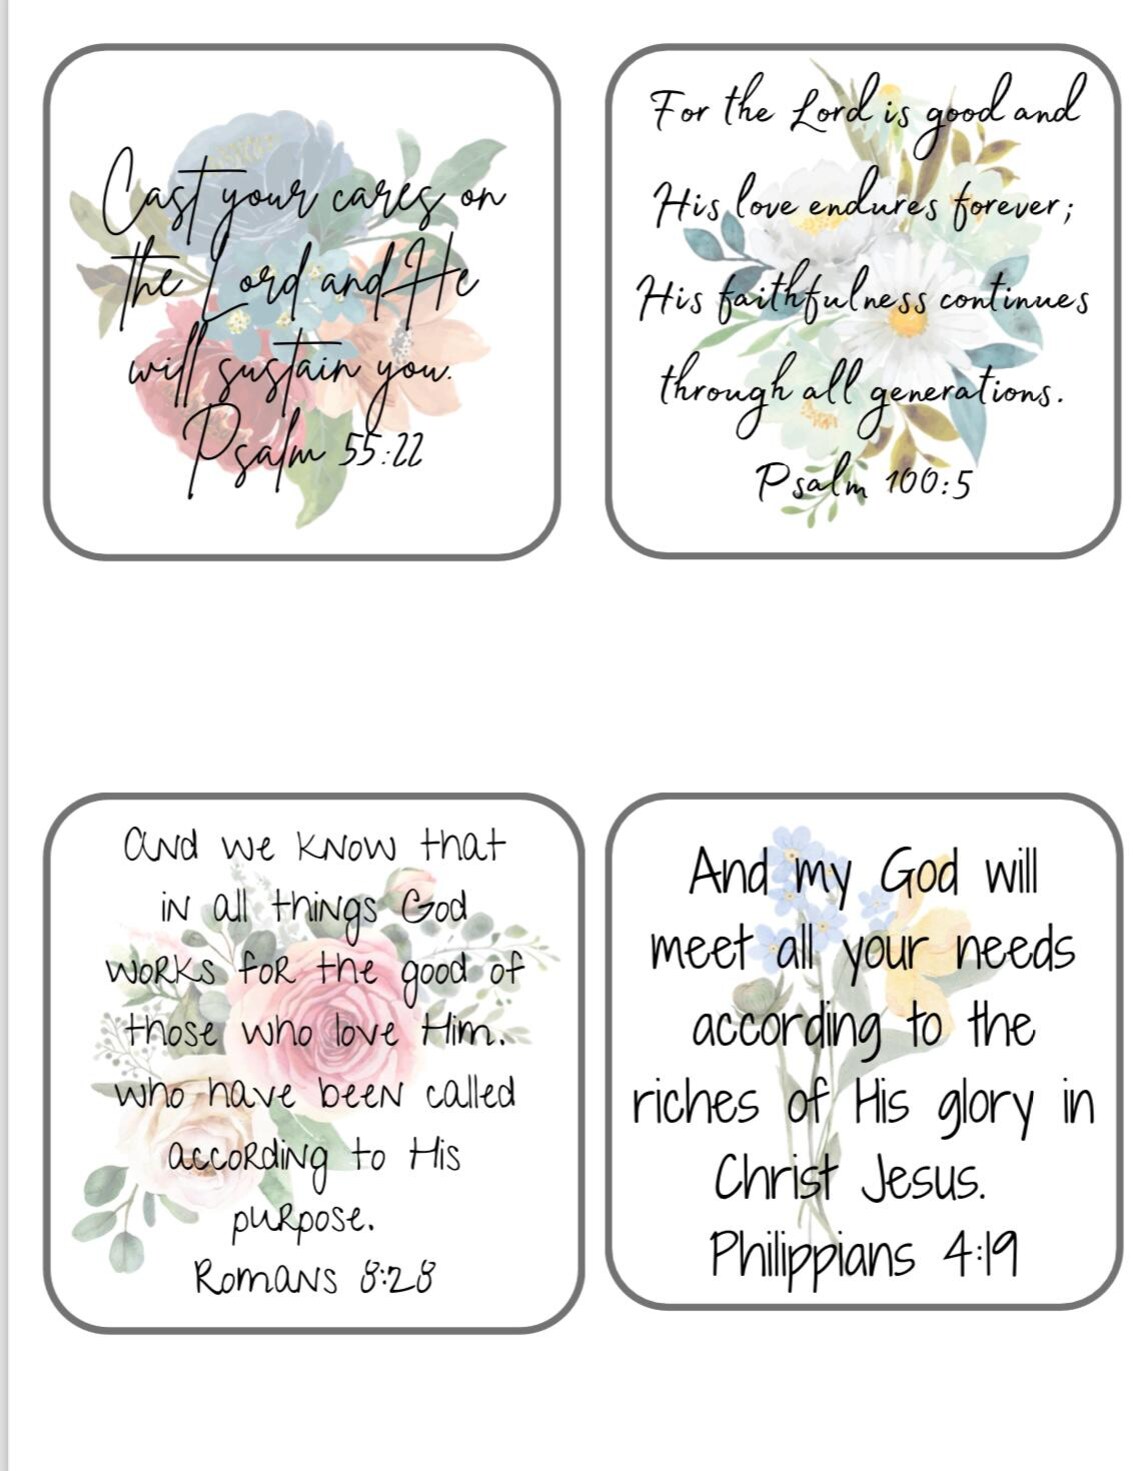 Cast your cares on
the Lord and He
will sustain you.
Psalm 55:22
For the Lord is good and
His love endures forever;
His faithfulness continues
through all generations.
Psalm 100:5
And we know that
in all things God
works for the good of
those who love Him.
who have been called
according to His
purpose.
Romans 8:28
And my God will
meet all your needs
according to the
riches of His glory in
Christ Jesus.
Philippians 4:19